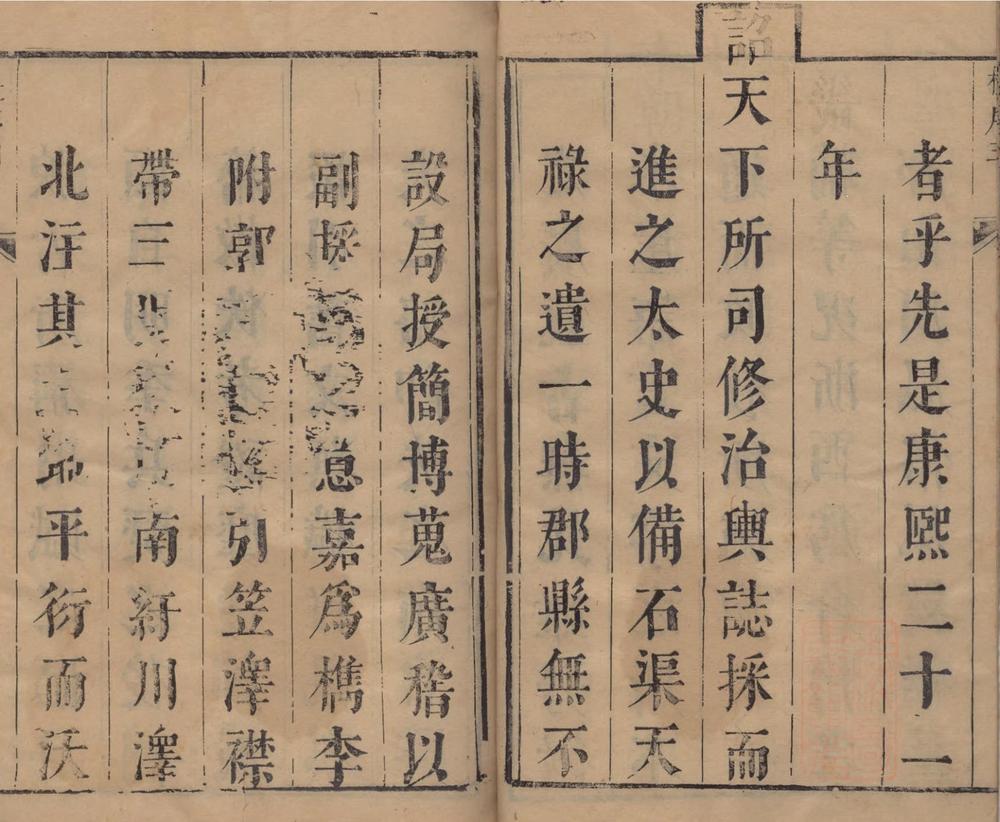 者乎先是康熙二十二
年
詔天下所司修治輿誌採而
進之太史以備石渠天
祿之遺一時郡縣無不
設局授簡博蒐廣稽以
副採意嘉為檇李
附郭引笠澤襟
帶三南紆川澤
北汪其平衍而沃